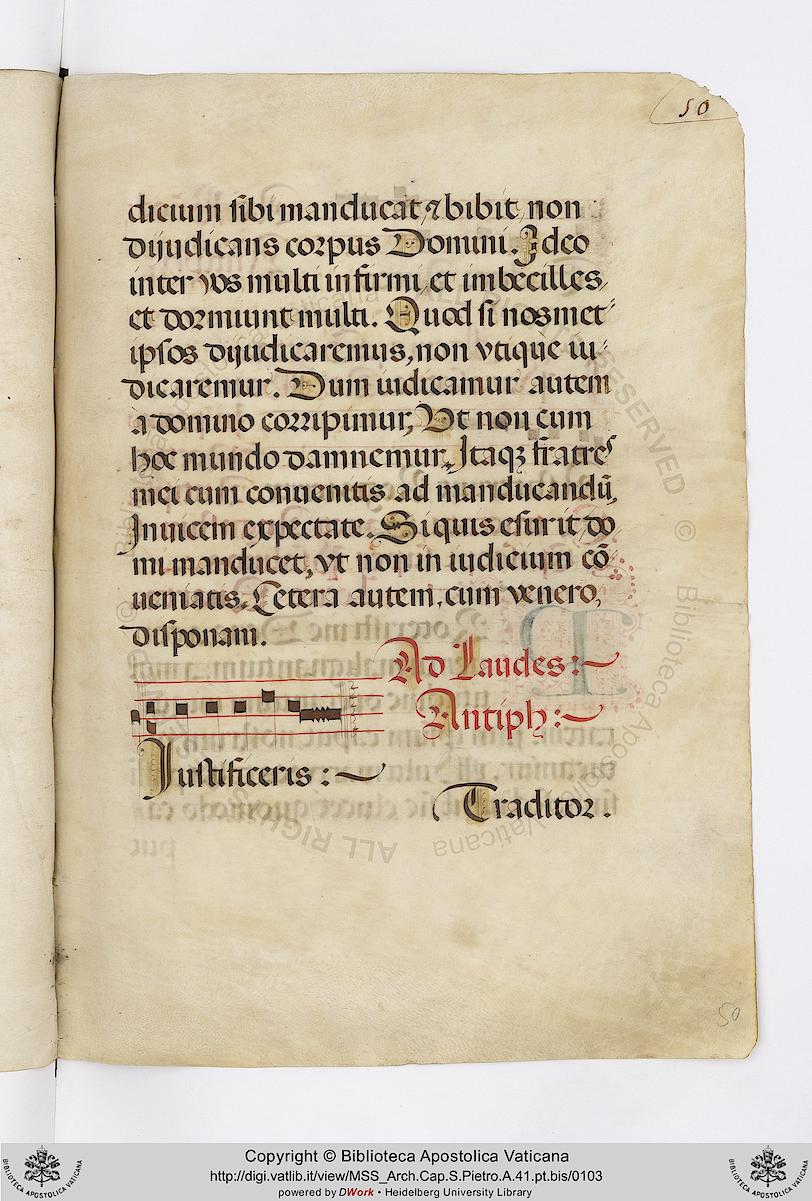 50
dicium sibi manducat, ⁊ bibit, non
dijudicans corpus Domini. Ideo
inter vos multi infirmi et imbecilles,
et dormiunt multi. Quod si nosmet-
ipsos dijudicaremus, non vtique iu-
dicaremur. Dum iudicamur autem
a domino corripimur, Vt non cum
hoc mundo damnemur. Itaqꝫ fratres
mei cum conuenitis ad manducandū,
Inuicem expectate. Si quis esurit do
mi manducet, vt non in iudicium cō
ueniatis. Cetera autem, cum venero,
disponam.
Ad Laudes:
Antiph:
Iustificeris:
Traditor.
50
Copyright © Biblioteca Apostolica Vaticana
http://digi.vatlib.it/view/MSS_Arch.Cap.S.Pietro.A.41.pt.bis/0103
powered by DWork • Heidelberg University Library